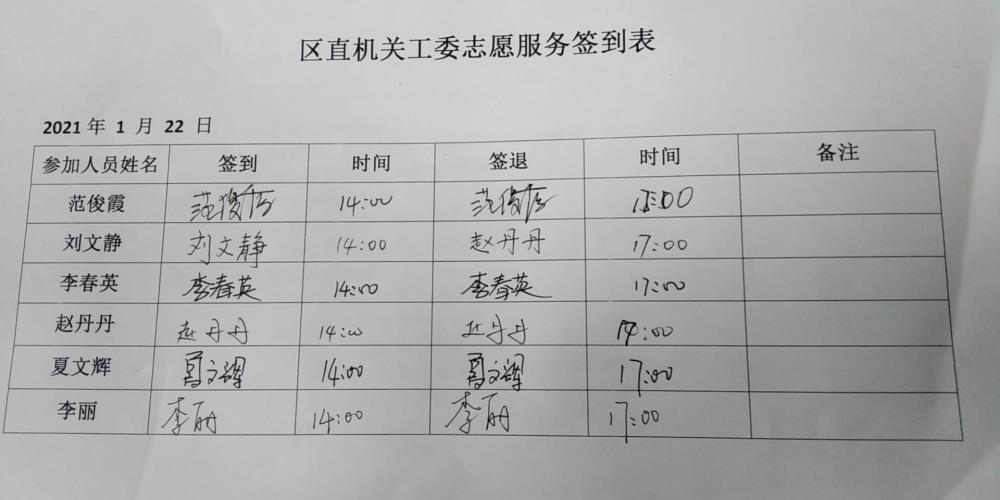 区直机关工委志愿服务签到表
2021 年 1 月 22 日
参加人员姓名 签到 时间 签退 时间 备注
范俊霞 范俊霞 14:00 范俊霞 15:00
刘文静 刘文静 14:00 赵丹丹 17:00
李春英 李春英 14:00 李春英 17:00
赵丹丹 赵丹丹 14:00 赵丹丹
夏文辉 夏文辉 14:00 夏文辉 17:00
李丽 李丽 14:00 李丽 17:00